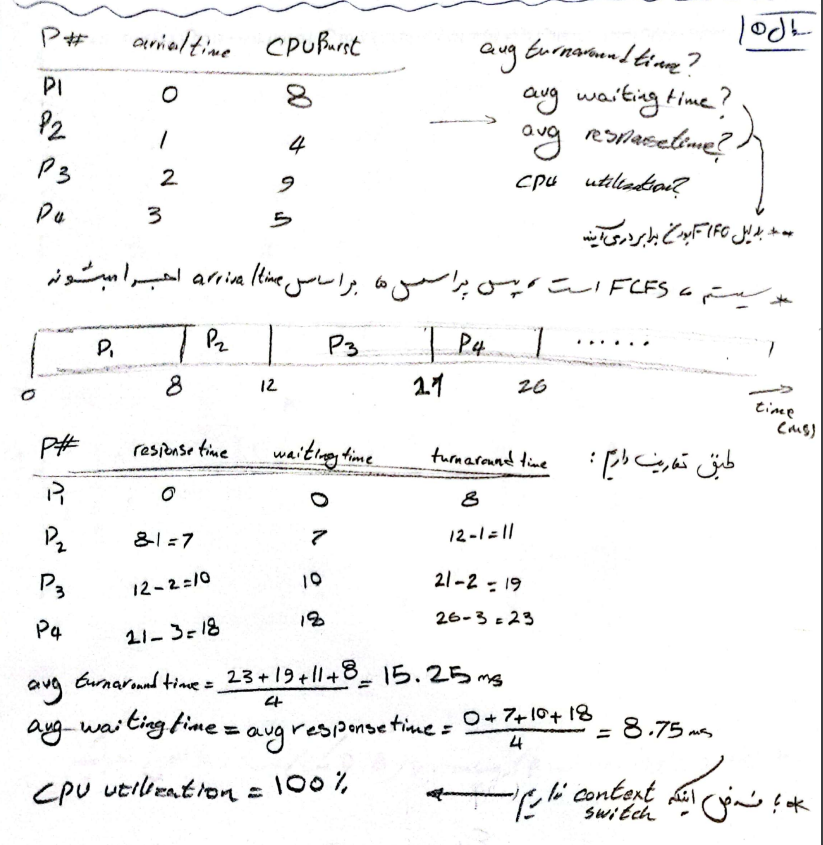 مثال ۱۰
P# arrivaltime CPUBurst
P1 0 8
P2 1 4
P3 2 9
P4 3 5
avg turnaround time?
avg waiting time?
avg response time?
CPU utilization?
** بدلیل FIFO بودن برابر درمی‌آیند
* سیستم FCFS است، پس پراسس ها براساس arrival time اجرا میشوند
P1 P2 P3 P4 ......
0 8 12 21 26
time (ms)
طبق تعاریف داریم :
P# response time waiting time turnaround time
P1 0 0 8
P2 8-1=7 7 12-1=11
P3 12-2=10 10 21-2=19
P4 21-3=18 18 26-3=23
avg turnaround time = 23+19+11+8 / 4 = 15.25 ms
avg waiting time = avg response time = 0+7+10+18 / 4 = 8.75 ms
CPU utilization = 100 %
* با فرض اینکه context switch نداریم